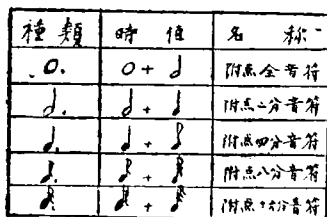 種類 時值 名称
附点全音符
附点二分音符
附点四分音符
附点八分音符
附点十六分音符